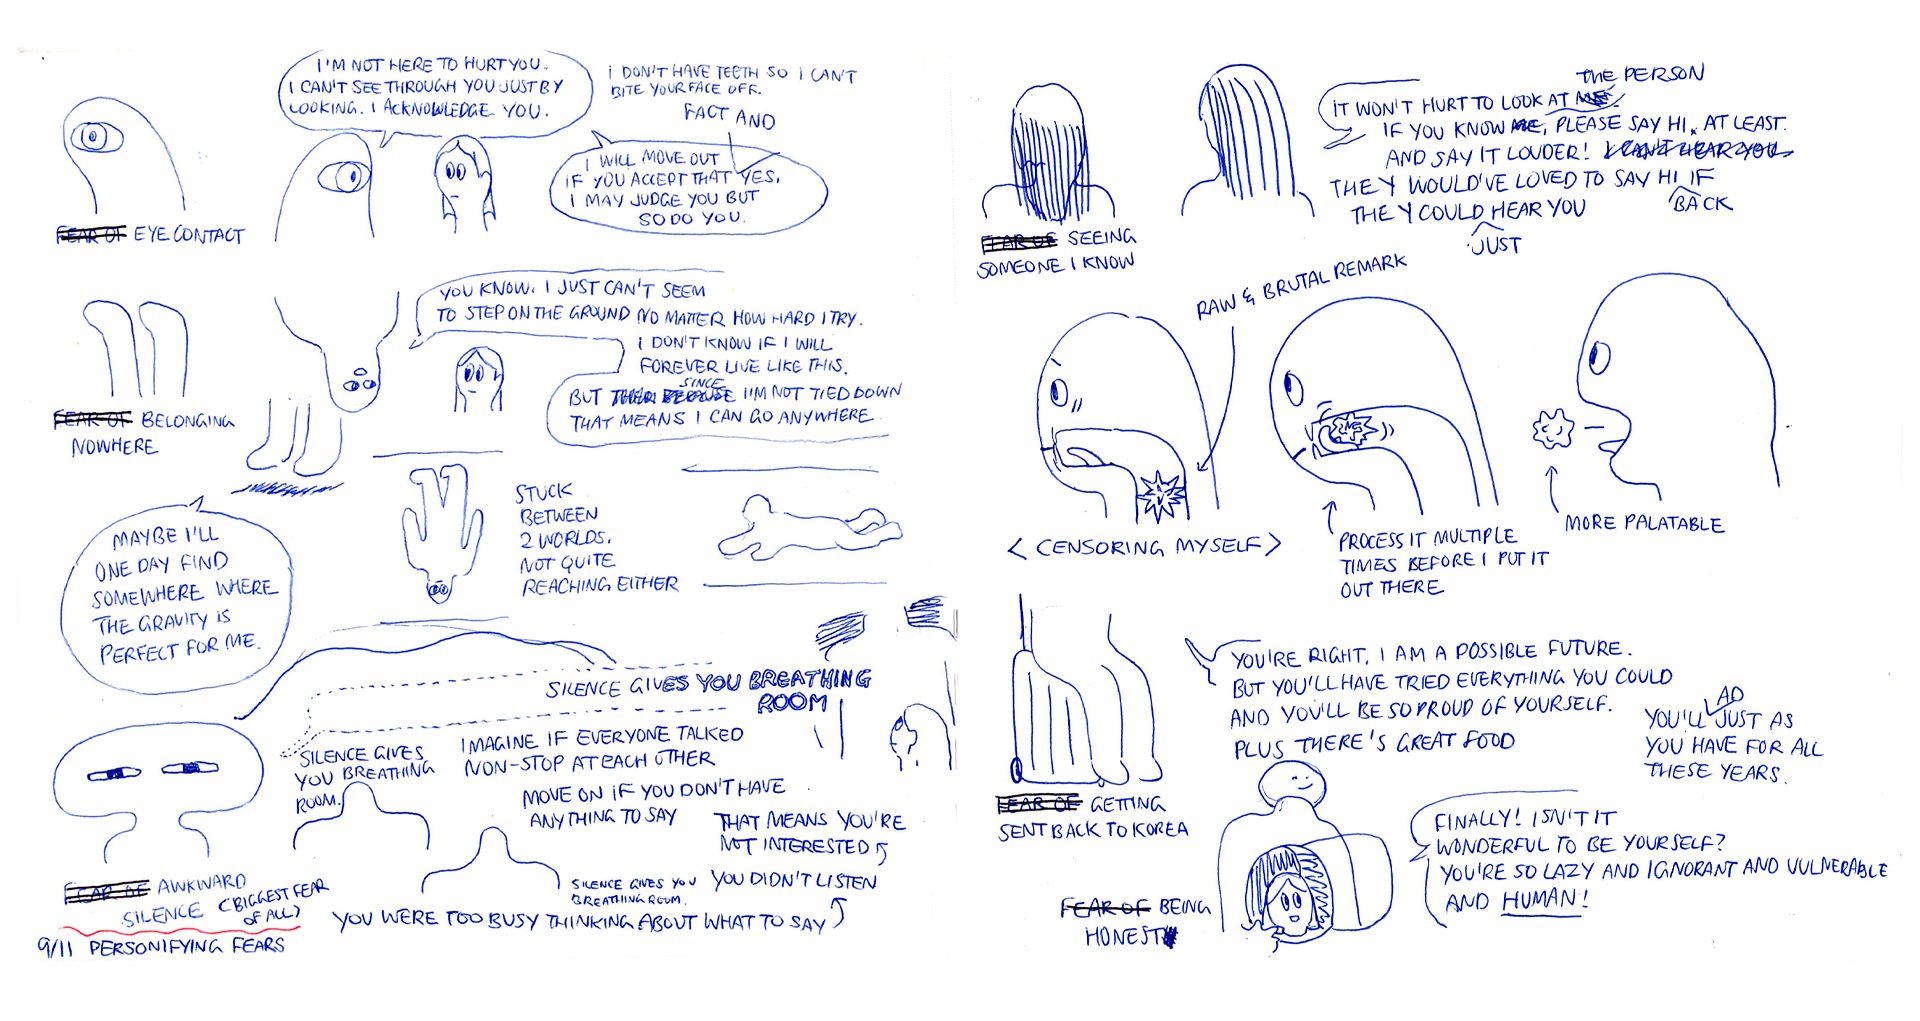 I'M NOT HERE TO HURT YOU.
I CAN'T SEE THROUGH YOU JUST BY
LOOKING. I ACKNOWLEDGE YOU.
I DON'T HAVE TEETH SO I CAN'T
BITE YOUR FACE OFF.
FACT AND
I WILL MOVE OUT
IF YOU ACCEPT THAT YES,
I MAY JUDGE YOU BUT
SO DO YOU.
FEAR OF EYE CONTACT
YOU KNOW. I JUST CAN'T SEEM
TO STEP ON THE GROUND NO MATTER HOW HARD I TRY.
I DON'T KNOW IF I WILL
FOREVER LIVE LIKE THIS.
SINCE
BUT BECAUSE I'M NOT TIED DOWN
THAT MEANS I CAN GO ANYWHERE.
FEAR OF BELONGING
NOWHERE
MAYBE I'LL
ONE DAY FIND
SOMEWHERE WHERE
THE GRAVITY IS
PERFECT FOR ME.
STUCK
BETWEEN
2 WORLDS.
NOT QUITE
REACHING EITHER
SILENCE GIVES YOU BREATHING
ROOM
SILENCE GIVES
YOU BREATHING
ROOM.
IMAGINE IF EVERYONE TALKED
NON-STOP AT EACH OTHER
MOVE ON IF YOU DON'T HAVE
ANYTHING TO SAY
THAT MEANS YOU'RE
NOT INTERESTED
SILENCE GIVES YOU
BREATHING ROOM.
YOU DIDN'T LISTEN
YOU WERE TOO BUSY THINKING ABOUT WHAT TO SAY
FEAR OF AWKWARD
SILENCE (BIGGEST FEAR
OF ALL)
9/11 PERSONIFYING FEARS
THE PERSON
IT WON'T HURT TO LOOK AT ME.
IF YOU KNOW ME, PLEASE SAY HI, AT LEAST.
AND SAY IT LOUDER! I CAN'T HEAR YOU
THEY WOULD'VE LOVED TO SAY HI IF
BACK
THEY COULD HEAR YOU
JUST
FEAR OF SEEING
SOMEONE I KNOW
RAW & BRUTAL REMARK
< CENSORING MYSELF >
PROCESS IT MULTIPLE
TIMES BEFORE I PUT IT
OUT THERE
MORE PALATABLE
YOU'RE RIGHT, I AM A POSSIBLE FUTURE.
BUT YOU'LL HAVE TRIED EVERYTHING YOU COULD
AND YOU'LL BE SO PROUD OF YOURSELF.
PLUS THERE'S GREAT FOOD
AD
YOU'LL JUST AS
YOU HAVE FOR ALL
THESE YEARS.
FEAR OF GETTING
SENT BACK TO KOREA
FINALLY! ISN'T IT
WONDERFUL TO BE YOURSELF?
YOU'RE SO LAZY AND IGNORANT AND VULNERABLE
AND HUMAN!
FEAR OF BEING
HONEST